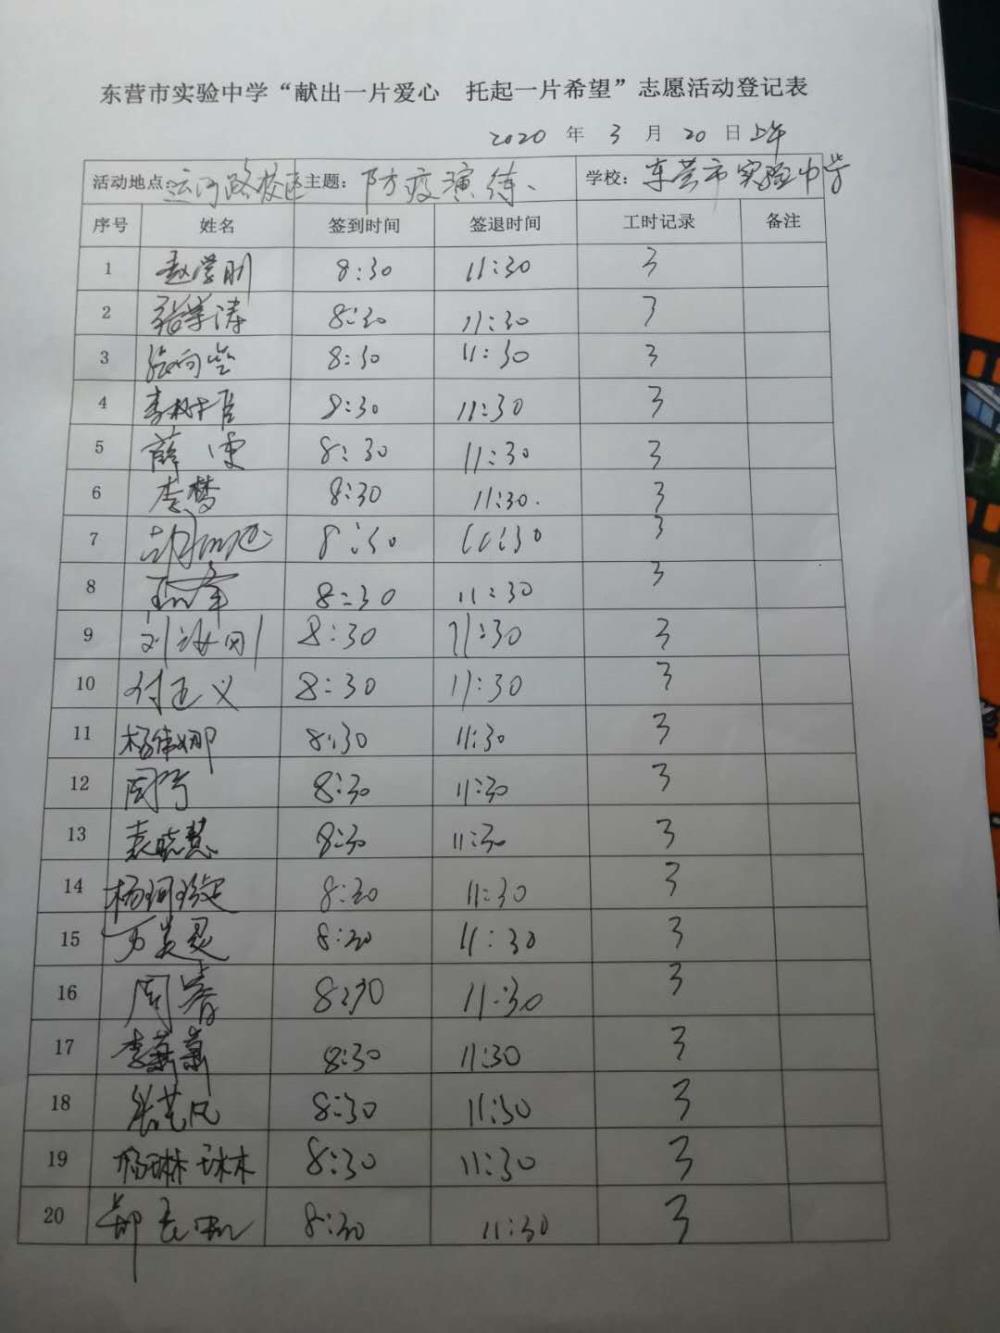 东营市实验中学“献出一片爱心 托起一片希望”志愿活动登记表
2020 年 3 月 20 日 上午
活动地点: 运河路校区 主题: 防疫演练、 学校: 东营市实验中学
序号 姓名 签到时间 签退时间 工时记录 备注
1 8:30 11:30 3
2 张学涛 8:30 11:30 3
3 8:30 11:30 3
4 李树臣 8:30 11:30 3
5 薛 8:30 11:30 3
6 李梦 8:30 11:30. 3
7 8:30 11:30 3
8 8:30 11:30 3
9 刘海刚 8:30 11:30 3
10 付正义 8:30 11:30 3
11 杨伟娜 8:30 11:30 3
12 周 8:30 11:30 3
13 袁晓慧 8:30 11:30 3
14 杨 8:30 11:30 3
15 万美灵 8:30 11:30 3
16 周睿 8:30 11:30 3
17 李萧萧 8:30 11:30 3
18 张艺凡 8:30 11:30 3
19 杨琳琳 8:30 11:30 3
20 8:30 11:30 3